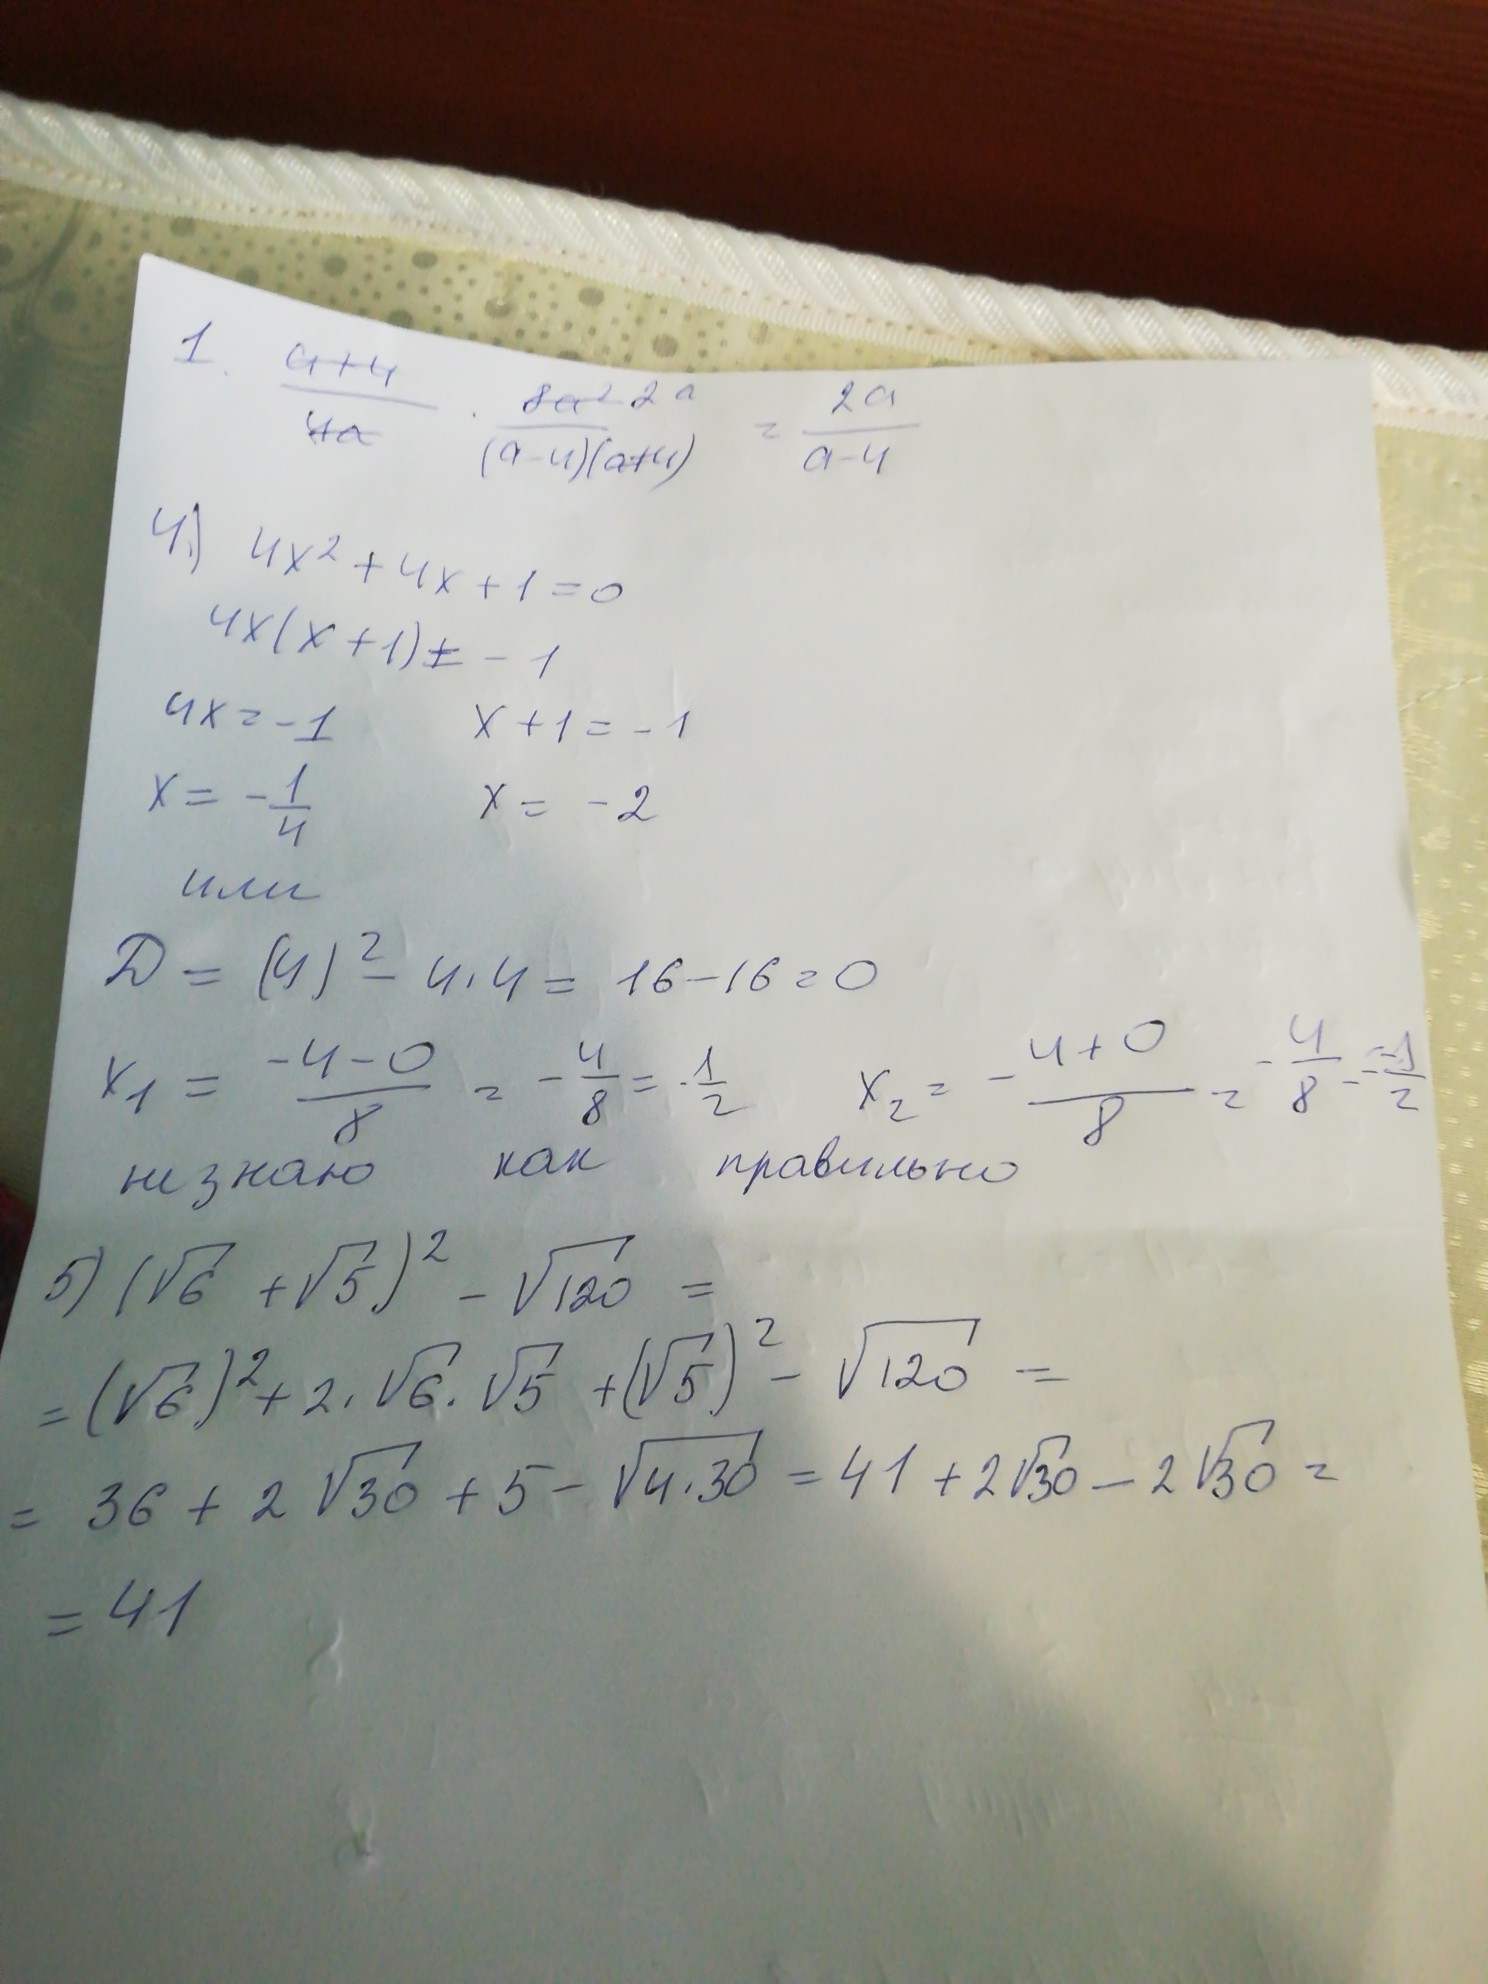 1. a+4/4a · 8a² 2a/(a-4)(a+4) = 2a/a-4
4.) 4x² + 4x + 1 = 0
4x(x+1) = - 1
4x = -1 x + 1 = - 1
x = - 1/4 x = - 2
или
D = (4)² - 4·4 = 16-16 = 0
x₁ = -4-0/8 = - 4/8 = - 1/2 x₂ = -4+0/8 = - 4/8 = - 1/2
не знаю как правильно
5) (√6 + √5)² - √120 =
= (√6)² + 2·√6·√5 + (√5)² - √120 =
= 36 + 2√30 + 5 - √4·30 = 41 + 2√30 - 2√30 =
= 41